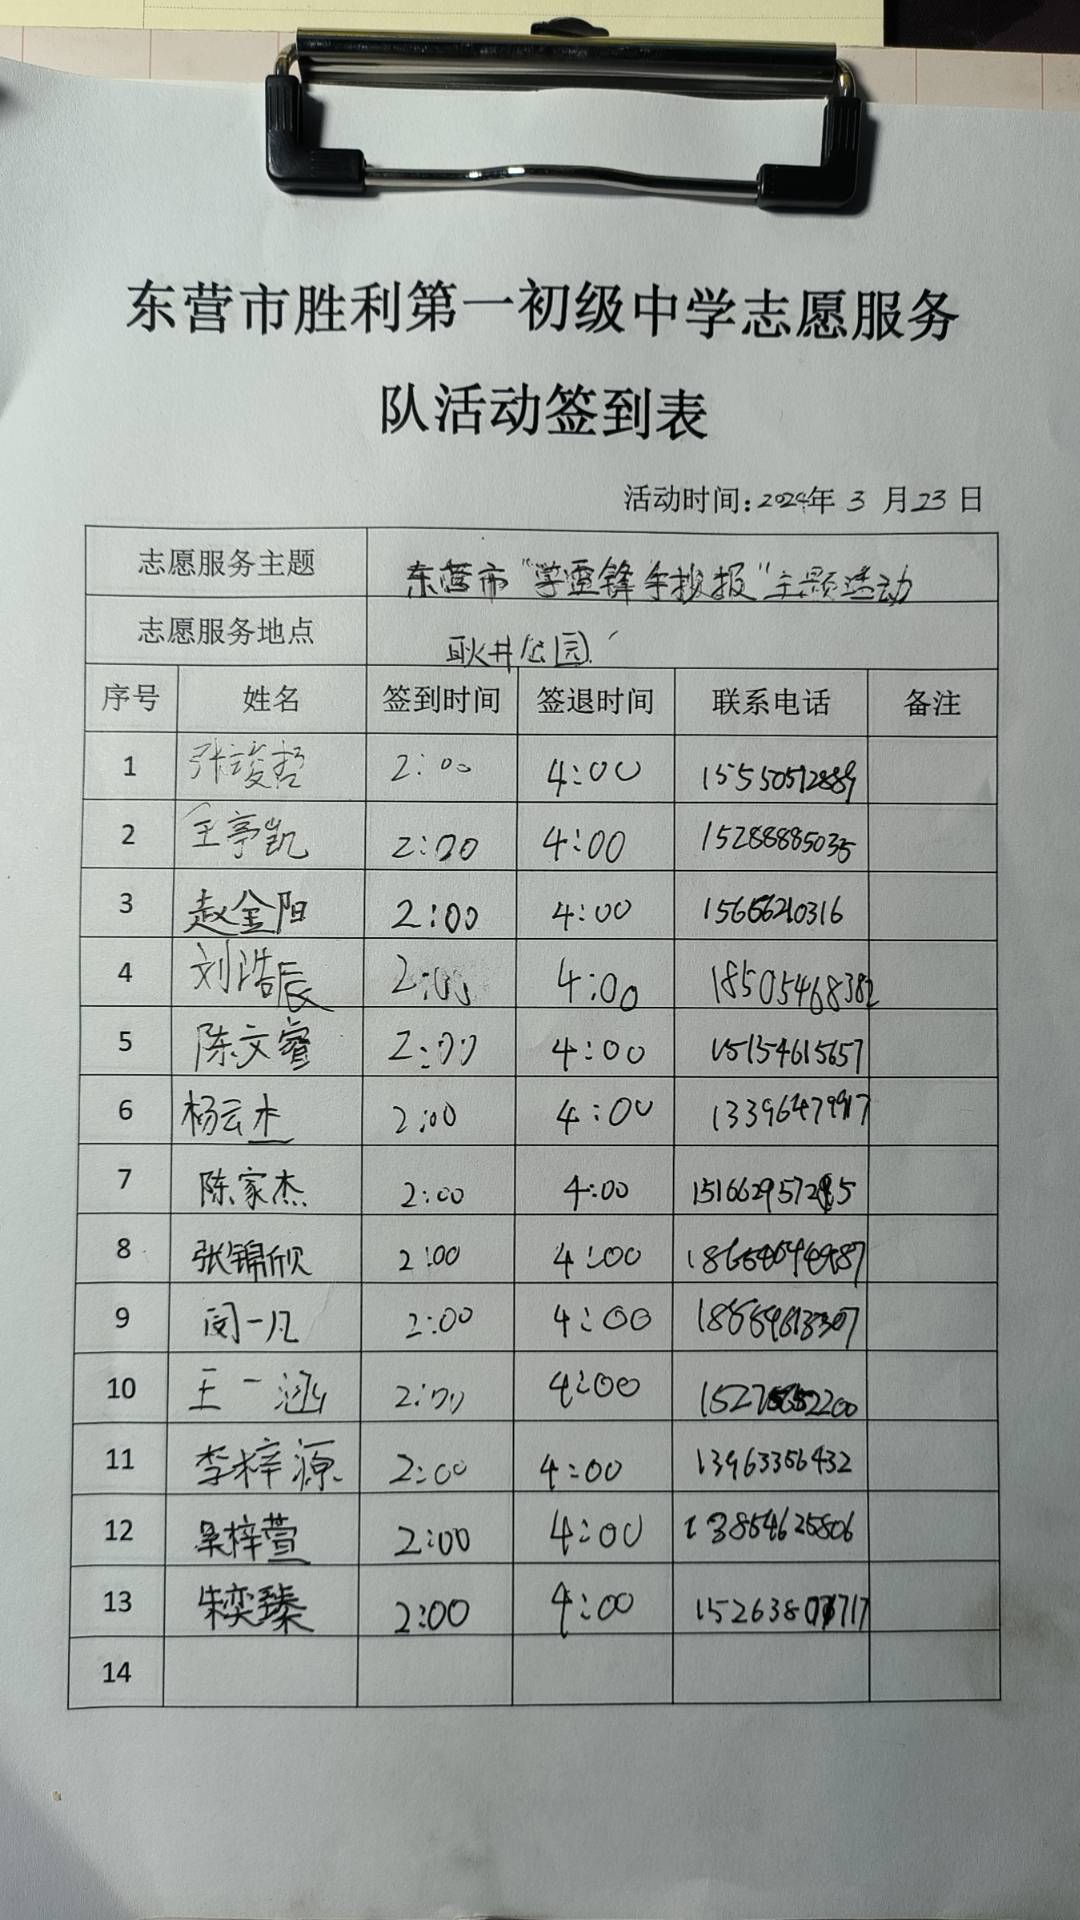 东营市胜利第一初级中学志愿服务
队活动签到表
活动时间:2024年 3 月 23 日
志愿服务主题 东营市“学雷锋手抄报”主题活动
志愿服务地点 耿井公园
序号 姓名 签到时间 签退时间 联系电话 备注
1 张竣哲 2:00 4:00 15550512889
2 王亭凯 2:00 4:00 15288885035
3 赵金阳 2:00 4:00 15666210316
4 刘浩辰 2:00 4:00 18505468382
5 陈文睿 2:00 4:00 15154615657
6 杨云杰 2:00 4:00
7 陈家杰 2:00 4:00
8 张锦欣 2:00 4:00
9 闵一凡 2:00 4:00
10 王一涵 2:00 4:00
11 李梓源 2:00 4:00 13963356432
12 吴梓萱 2:00 4:00 13854625806
13 朱奕臻 2:00 4:00
14